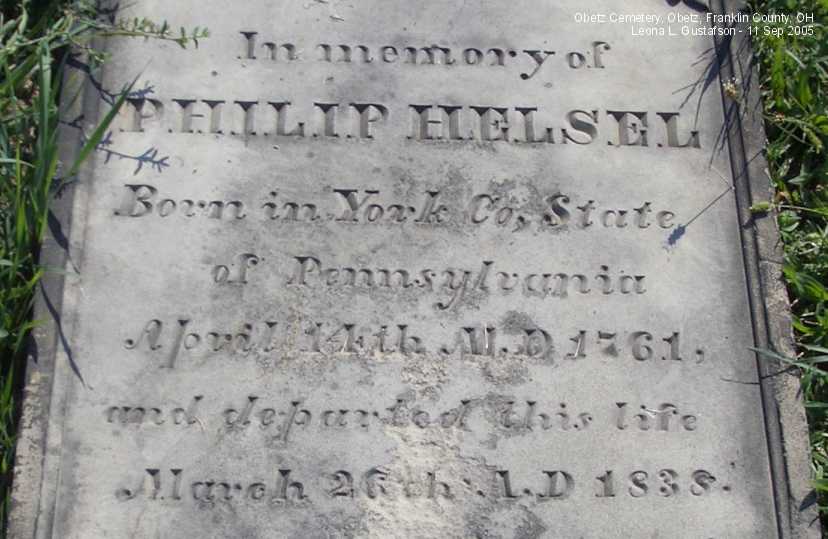 Obetz Cemetery, Obetz, Franklin County, OH
Leona L. Gustafson - 11 Sep 2005
In memory of
PHILIP HELSEL
Born in York Co, State
of Pennsylvania
April 14th A.D 1761,
and departed this life
March 26th A.D 1838.